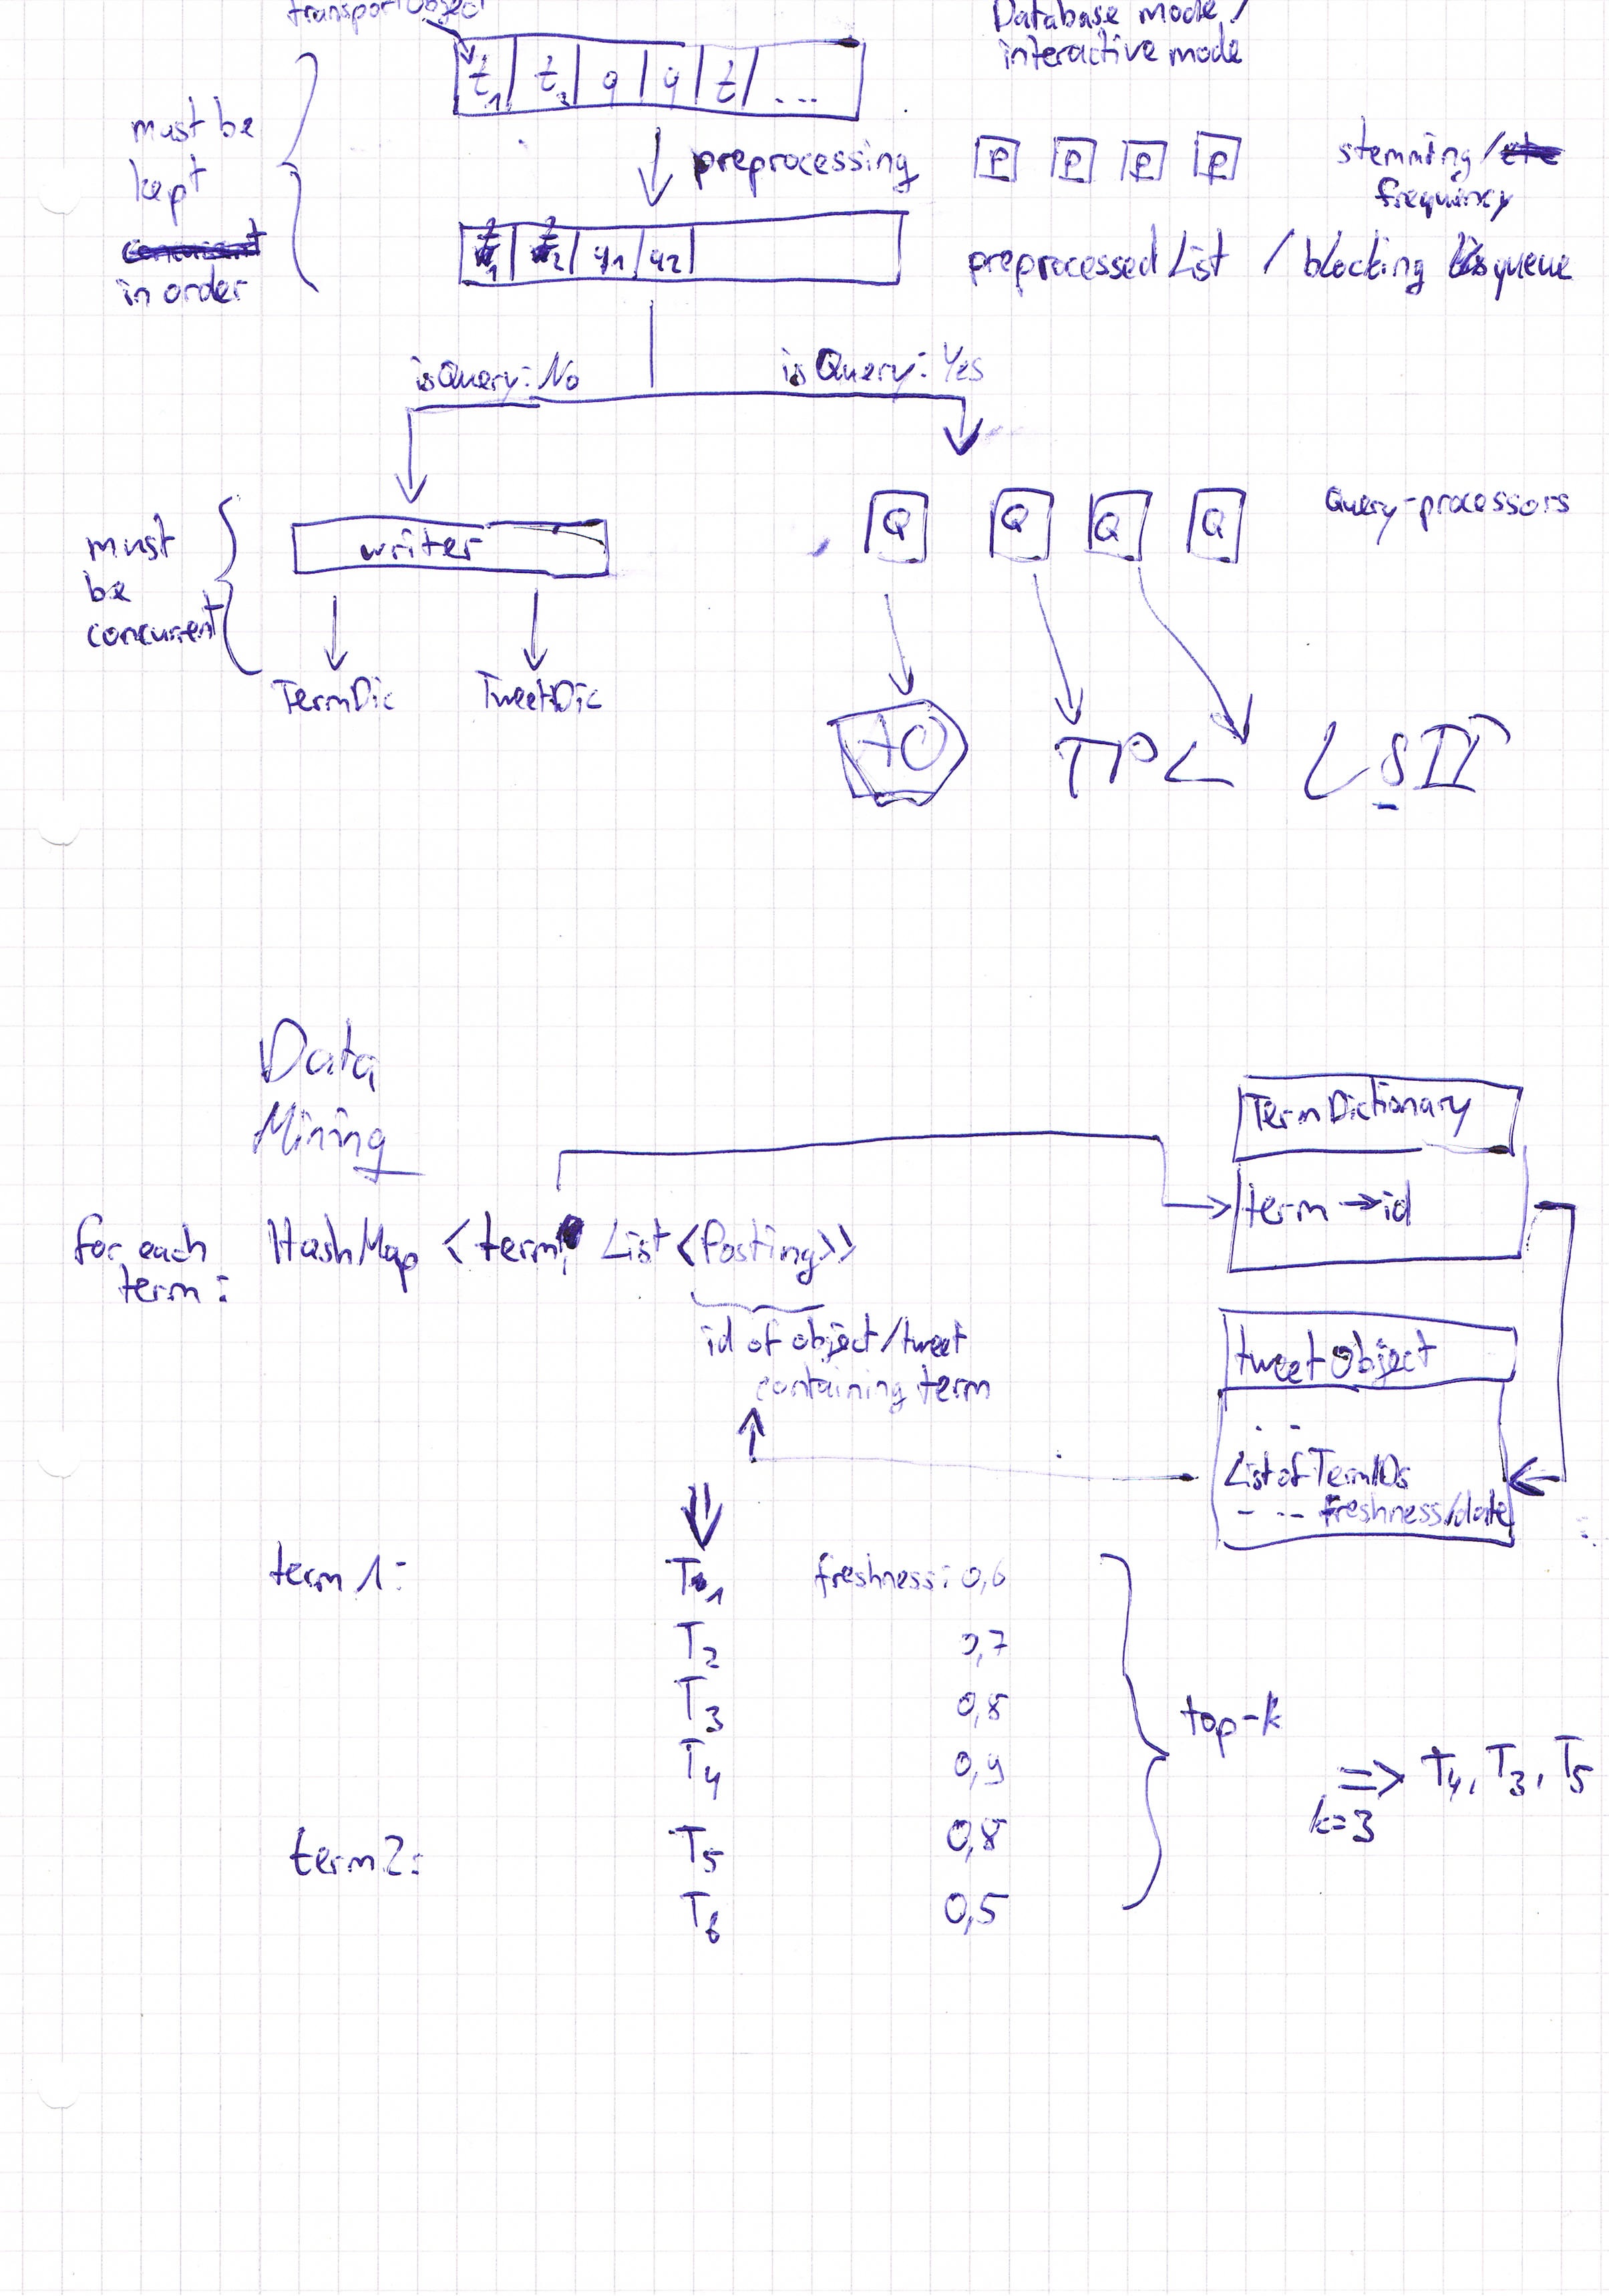 transportObject
Database mode /
interactive mode
t1 t2 q q t ...
must be
kept
in order
preprocessing
P P P P
stemming /
frequency
t1 t2 q1 q2
preprocessedList / blocking queue
isQuery: No
isQuery: Yes
must
be
concurrent
writer
Q Q Q Q
Query-processors
TermDic
TweetDic
AO
TPL
LSII
Data
Mining
TermDictionary
term → id
for each
term:
HashMap <term, List <Posting>>
id of object/tweet
containing term
tweetObject
ListofTermIDs
freshness/date
term 1: T1 freshness: 0,6
T2 0,7
T3 0,8
T4 0,9
term 2: T5 0,8
T6 0,5
top-k
k=3
=> T4, T3, T5